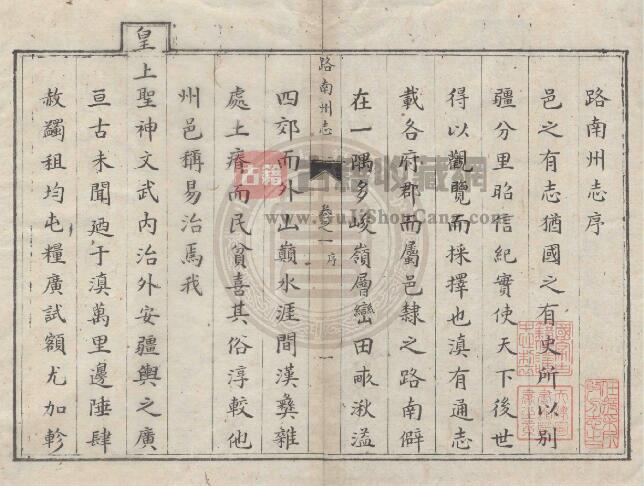 路南州志序
邑之有志猶國之有史所以別
疆分里昭信紀實使天下後世
得以觀覽而採擇也滇有通志
載各府郡而屬邑隸之路南僻
在一隅多峻嶺層巒田畝湫溢
路南州志
卷之一 序
一
四郊而外山巔水涯間漢彝雜
處土瘠而民貧喜其俗淳較他
州邑稱易治焉我
皇上聖神文武内治外安疆輿之廣
亘古未聞廼于滇萬里邊陲肆
赦蠲租均屯糧廣試額尤加軫
古籍 古籍收藏網
www.GuJiShouCang.com